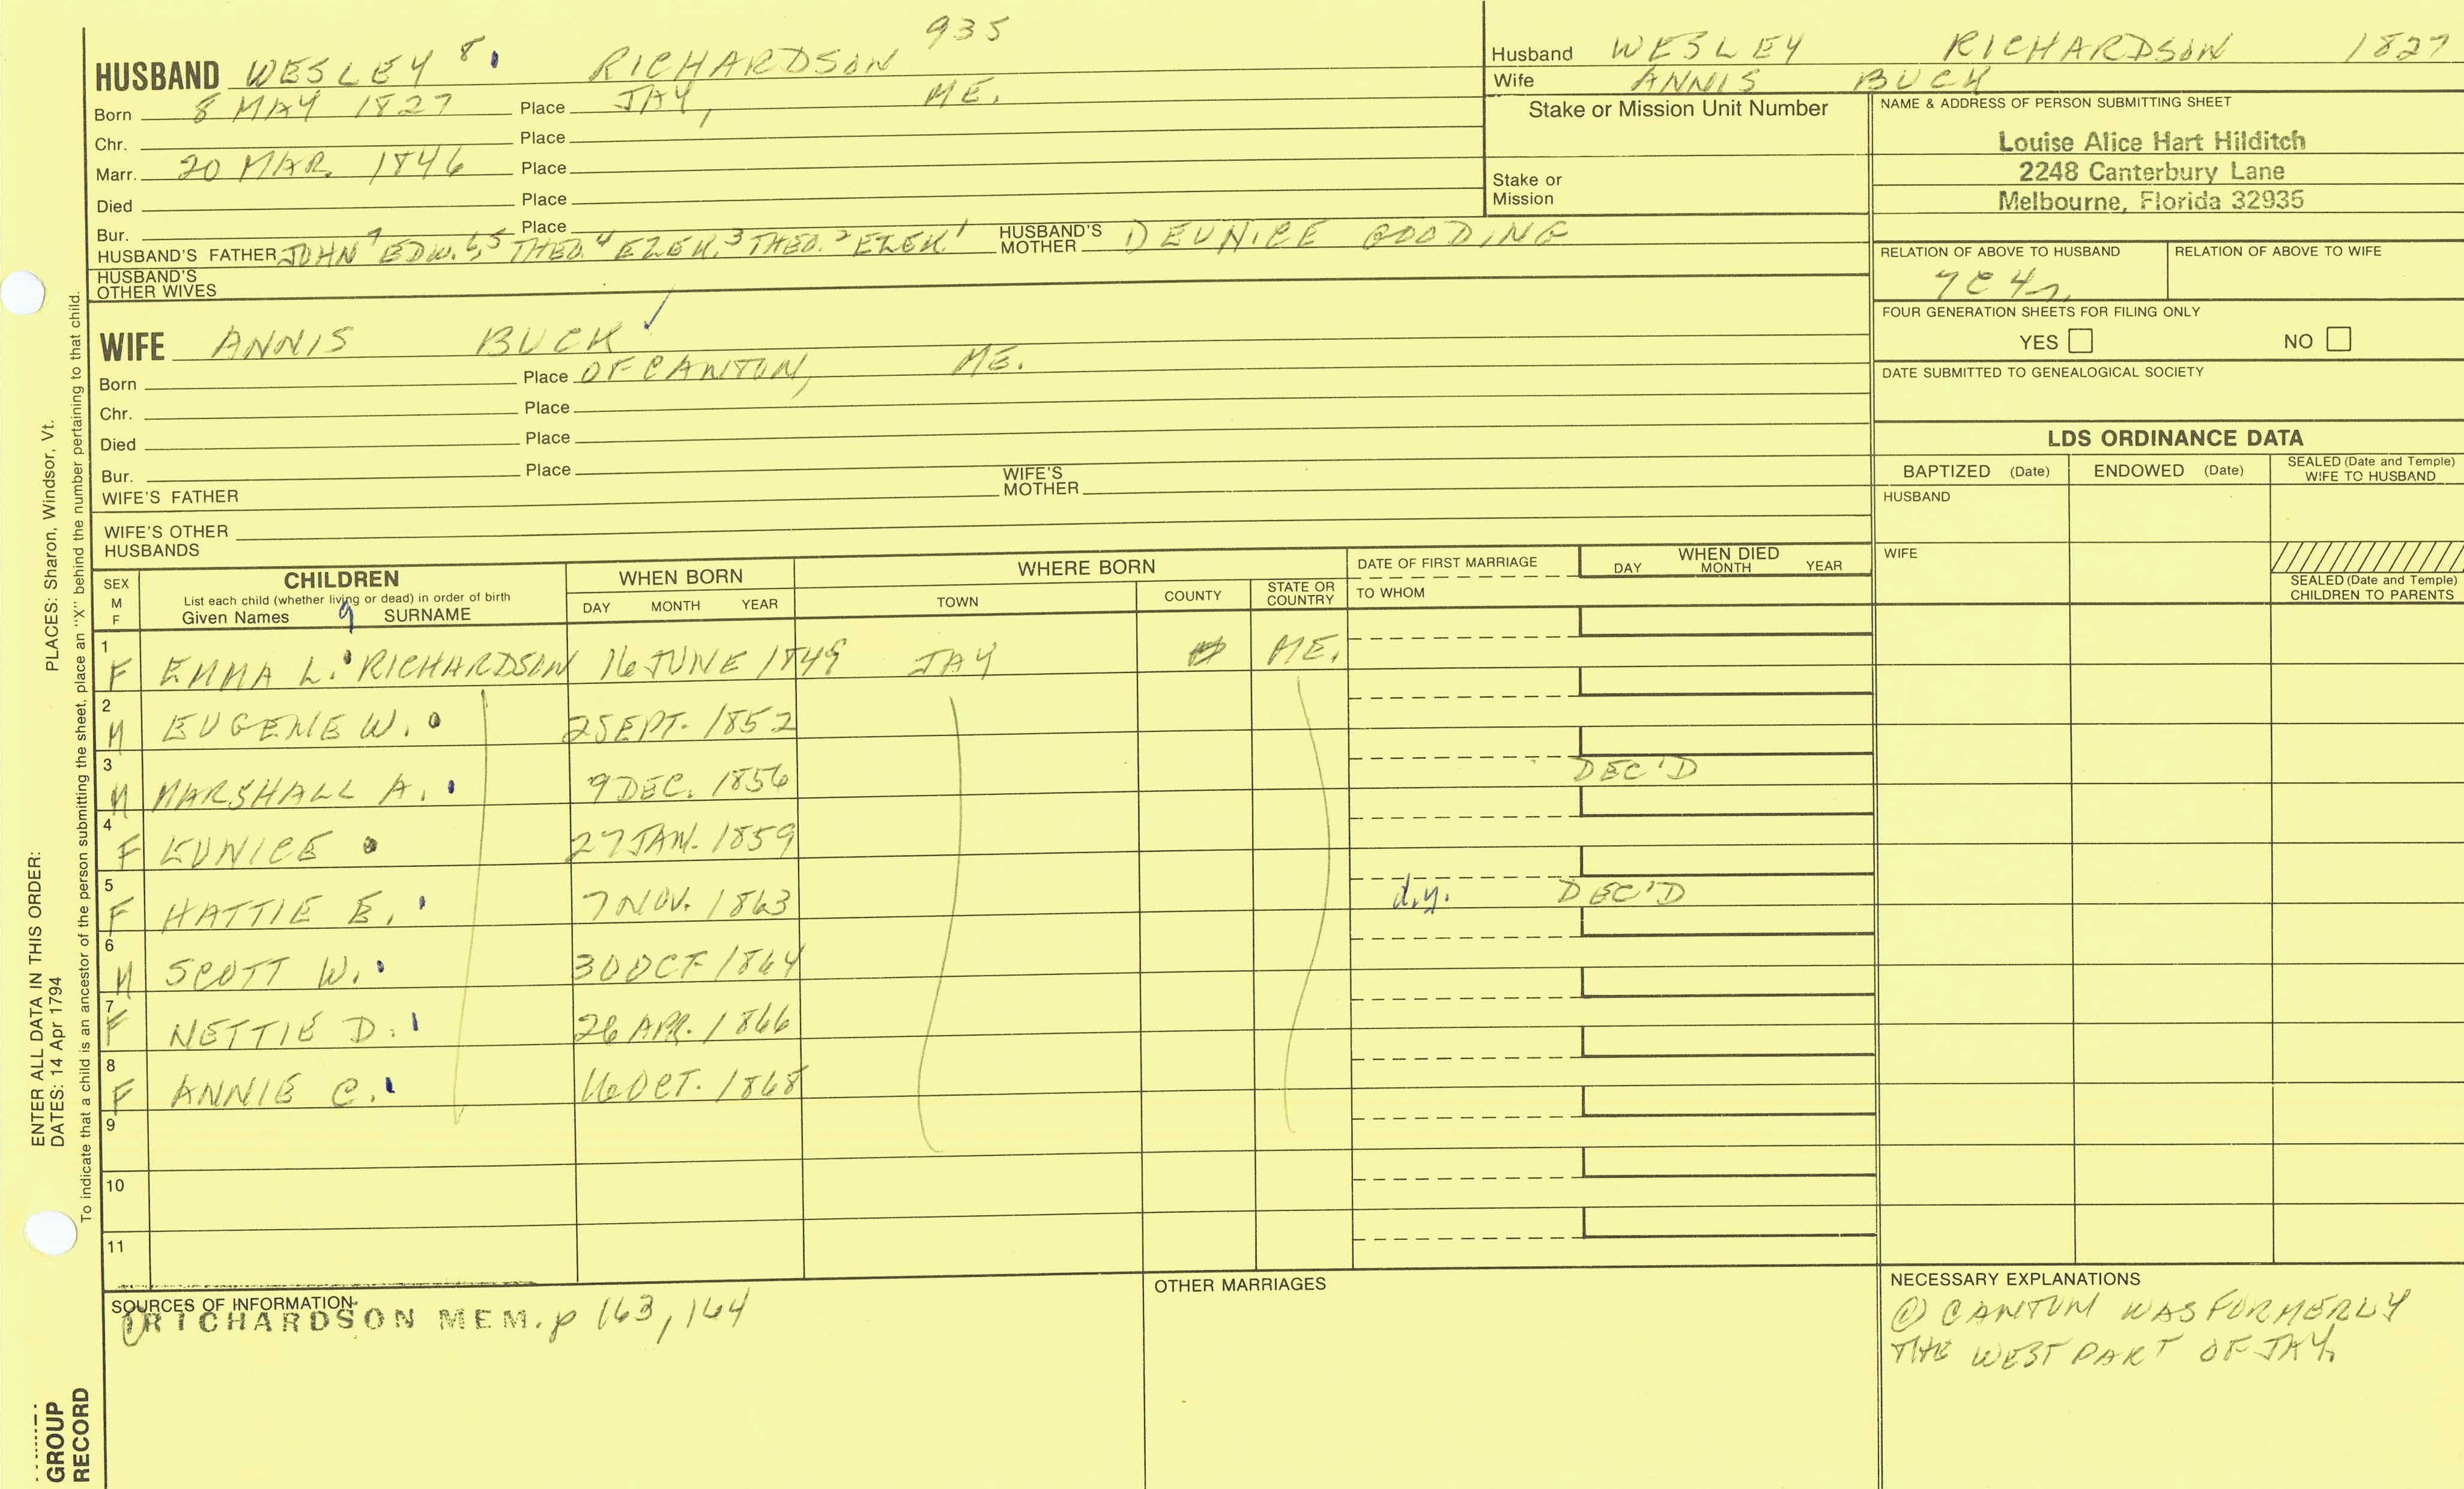 935
HUSBAND WESLEY 8. RICHARDSON
Born 8 MAY 1827 Place JAY, ME.
Chr. Place
Marr. 20 MAR. 1846 Place
Died Place
Bur. Place
HUSBAND'S FATHER JOHN 7 EDW. 6,5 THEO. 4 EZEK. 3 THEO. 2 EZEK 1 HUSBAND'S MOTHER DEUNICE GOODING
HUSBAND'S OTHER WIVES
WIFE ANNIS BUCK
Born Place OF CANTON, ME.
Chr. Place
Died Place
Bur. Place
WIFE'S FATHER WIFE'S MOTHER
WIFE'S OTHER HUSBANDS
Husband WESLEY RICHARDSON 1827
Wife ANNIS BUCK
Stake or Mission Unit Number
Stake or Mission
NAME & ADDRESS OF PERSON SUBMITTING SHEET
Louise Alice Hart Hilditch
2248 Canterbury Lane
Melbourne, Florida 32935
RELATION OF ABOVE TO HUSBAND RELATION OF ABOVE TO WIFE
7C4r
FOUR GENERATION SHEETS FOR FILING ONLY
YES NO
DATE SUBMITTED TO GENEALOGICAL SOCIETY
LDS ORDINANCE DATA
BAPTIZED (Date) ENDOWED (Date) SEALED (Date and Temple) WIFE TO HUSBAND
HUSBAND
WIFE
SEALED (Date and Temple) CHILDREN TO PARENTS
SEX M F CHILDREN WHEN BORN WHERE BORN DATE OF FIRST MARRIAGE WHEN DIED
List each child (whether living or dead) in order of birth
Given Names 9 SURNAME DAY MONTH YEAR TOWN COUNTY STATE OR COUNTRY TO WHOM DAY MONTH YEAR
1 F EMMA L. RICHARDSON 16 JUNE 1849 JAY ME.
2 M EUGENE W. 2 SEPT. 1852
3 M MARSHALL A. 9 DEC. 1856 DEC'D
4 F EUNICE 27 JAN. 1859
5 F HATTIE E. 7 NOV. 1863 d.y. DEC'D
6 M SCOTT W. 30 OCT 1864
7 F NETTIE D. 26 APR. 1866
8 F ANNIE C. 16 OCT. 1868
9
10
11
SOURCES OF INFORMATION
① RICHARDSON MEM. p 163, 164
OTHER MARRIAGES
NECESSARY EXPLANATIONS
@ CANTUM WAS FORMERLY
THE WEST PART OF JAY.
PLACES: Sharon, Windsor, Vt.
To indicate that a child is an ancestor of the person submitting the sheet, place an "X" behind the number pertaining to that child.
ENTER ALL DATA IN THIS ORDER:
DATES: 14 Apr 1794
GROUP
RECORD